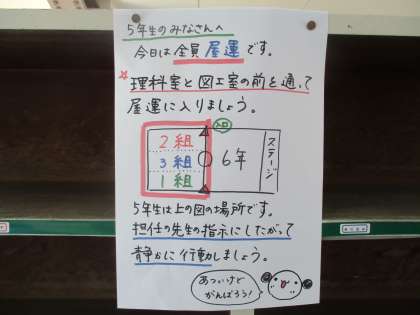 5年生のみなさんへ
今日は全員屋運です。
☆理科室と図工室の前を通って
屋運に入りましょう。
入口
2組
3組
1組
6年
ステージ
5年生は上の図の場所です。
担任の先生の指示にしたがって
静かに行動しましょう。
あついけど
がんばろう!